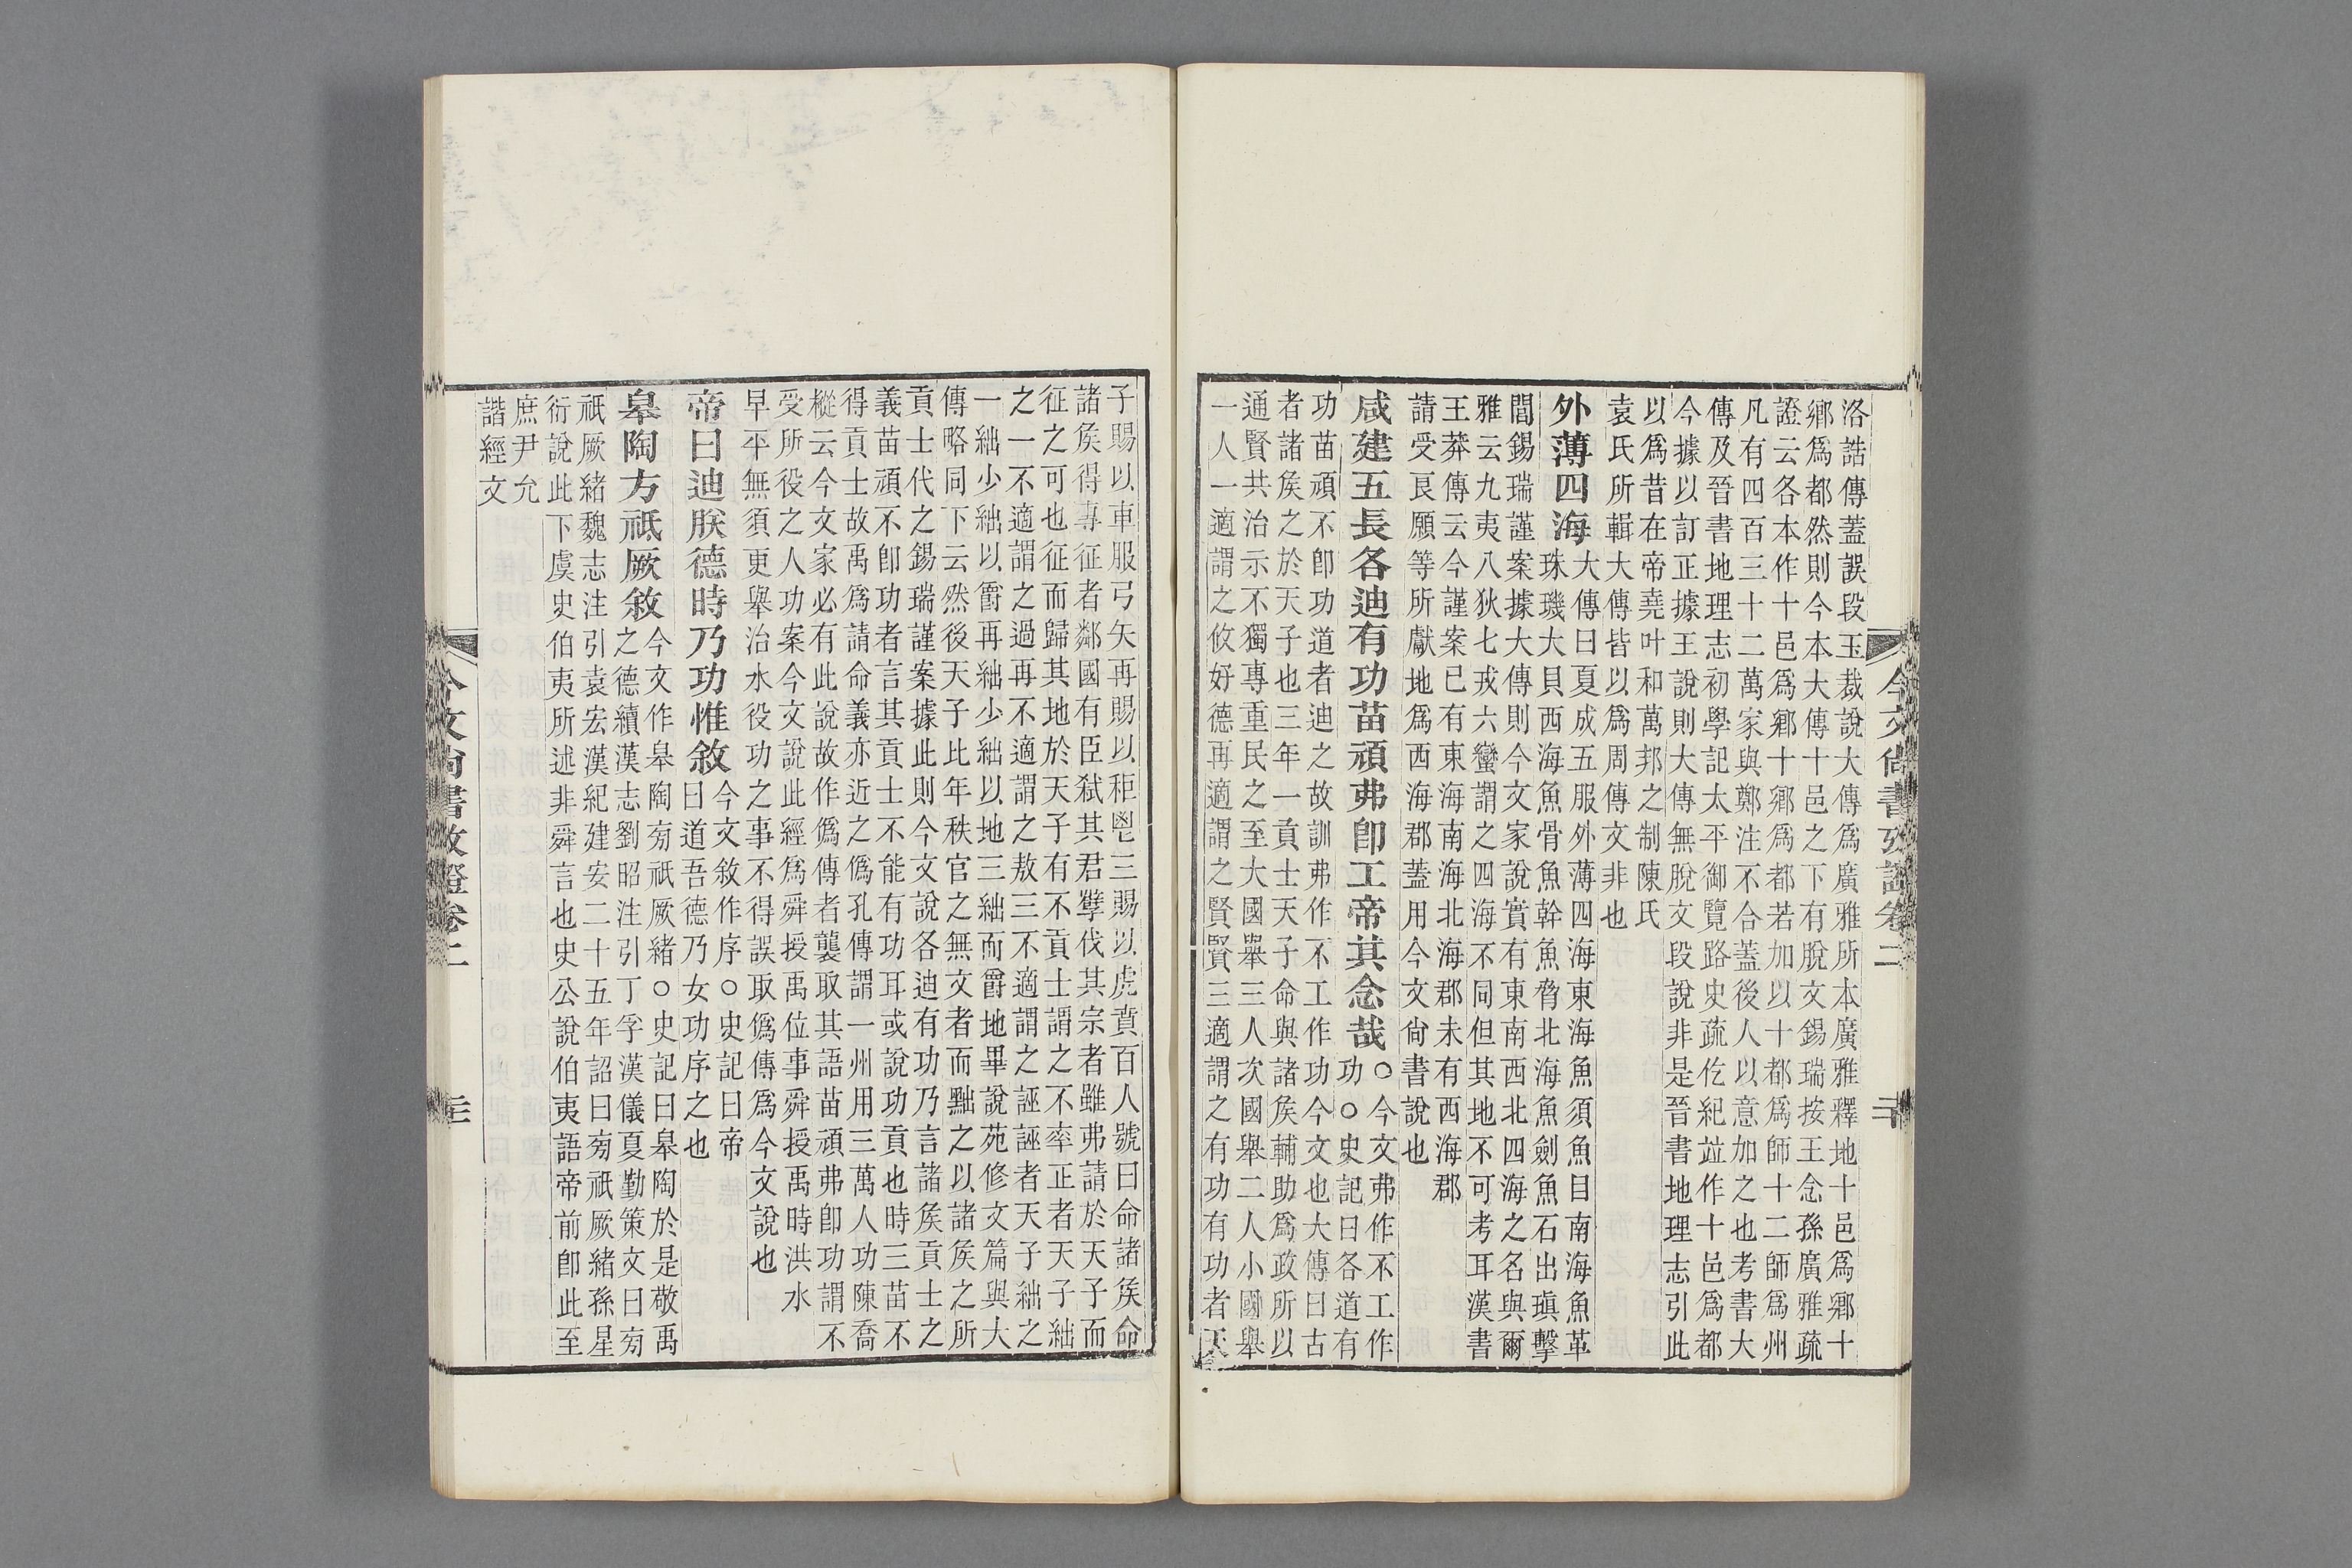 洛誥傳蓋誤段玉裁說大傳爲廣雅所本廣雅釋地十邑爲鄉十
鄉爲都然則今本大傳十邑之下有脫文錫瑞按王念孫廣雅疏
證云各本作十邑爲鄉十鄉爲都若加以十都爲師十二師爲州
凡有四百三十二萬家與鄭注不合蓋後人以意加之也考書大
傳及晉書地理志初學記太平御覽路史疏仡紀竝作十邑爲都
今據以訂正據王說則大傳無脫文段說非是晉書地理志引此
以爲昔在帝堯叶和萬邦之制陳氏
袁氏所輯大傳皆以爲周傳文非也
外薄四海
大傳曰夏成五服外薄四海東海魚須魚目南海魚革
珠璣大貝西海魚骨魚幹魚脅北海魚劍魚石出瑱擊
閭錫瑞謹案據大傳則今文家說實有東南西北四海之名與爾
雅云九夷八狄七戎六蠻謂之四海不同但其地不可考耳漢書
王莽傳云今謹案已有東海南海北海郡未有西海郡
請受良願等所獻地爲西海郡蓋用今文尙書說也
咸建五長各迪有功苗頑弗卽工帝其念哉
○今文弗作不工作
功○史記曰各道有
功苗頑不卽功道者迪之故訓弗作不工作功今文也大傳曰古
者諸矦之於天子也三年一貢士天子命與諸矦輔助爲政所以
通賢共治示不獨專重民之至大國舉三人次國舉二人小國舉
一人一適謂之攸好德再適謂之賢賢三適謂之有功有功者天
今文尙書攷證卷二
二十
子賜以車服弓矢再賜以秬鬯三賜以虎賁百人號曰命諸矦命
諸矦得專征者鄰國有臣弒其君孼伐其宗者雖弗請於天子而
征之可也征而歸其地於天子有不貢士謂之不率正者天子絀
之一不適謂之過再不適謂之敖三不適謂之誣誣者天子絀之
一絀少絀以爵再絀少絀以地三絀而爵地畢說苑修文篇與大
傳略同下云然後天子比年秩官之無文者而黜之以諸矦之所
貢士代之錫瑞謹案據此則今文說各迪有功乃言諸矦貢士之
義苗頑不卽功者言其貢士不能有功耳或說功貢也時三苗不
得貢士故禹爲請命義亦近之僞孔傳謂一州用三萬人功陳喬
樅云今文家必有此說故作僞傳者襲取其語苗頑弗卽功謂不
受所役之人功案今文說此經爲舜授禹位事舜授禹時洪水
早平無須更舉治水役功之事不得誤取僞傳爲今文說也
帝曰迪朕德時乃功惟敘
今文敘作序○史記曰帝
曰道吾德乃女功序之也
皋陶方祗厥敘
今文作皋陶㫄祇厥緒○史記曰皋陶於是敬禹
之德續漢志劉昭注引丁孚漢儀夏勤策文曰㫄
祇厥緒魏志注引袁宏漢紀建安二十五年詔曰㫄祇厥緒孫星
衍說此下虞史伯夷所述非舜言也史公說伯夷語帝前卽此至
庶尹允
諧經文
今文尙書攷證卷二